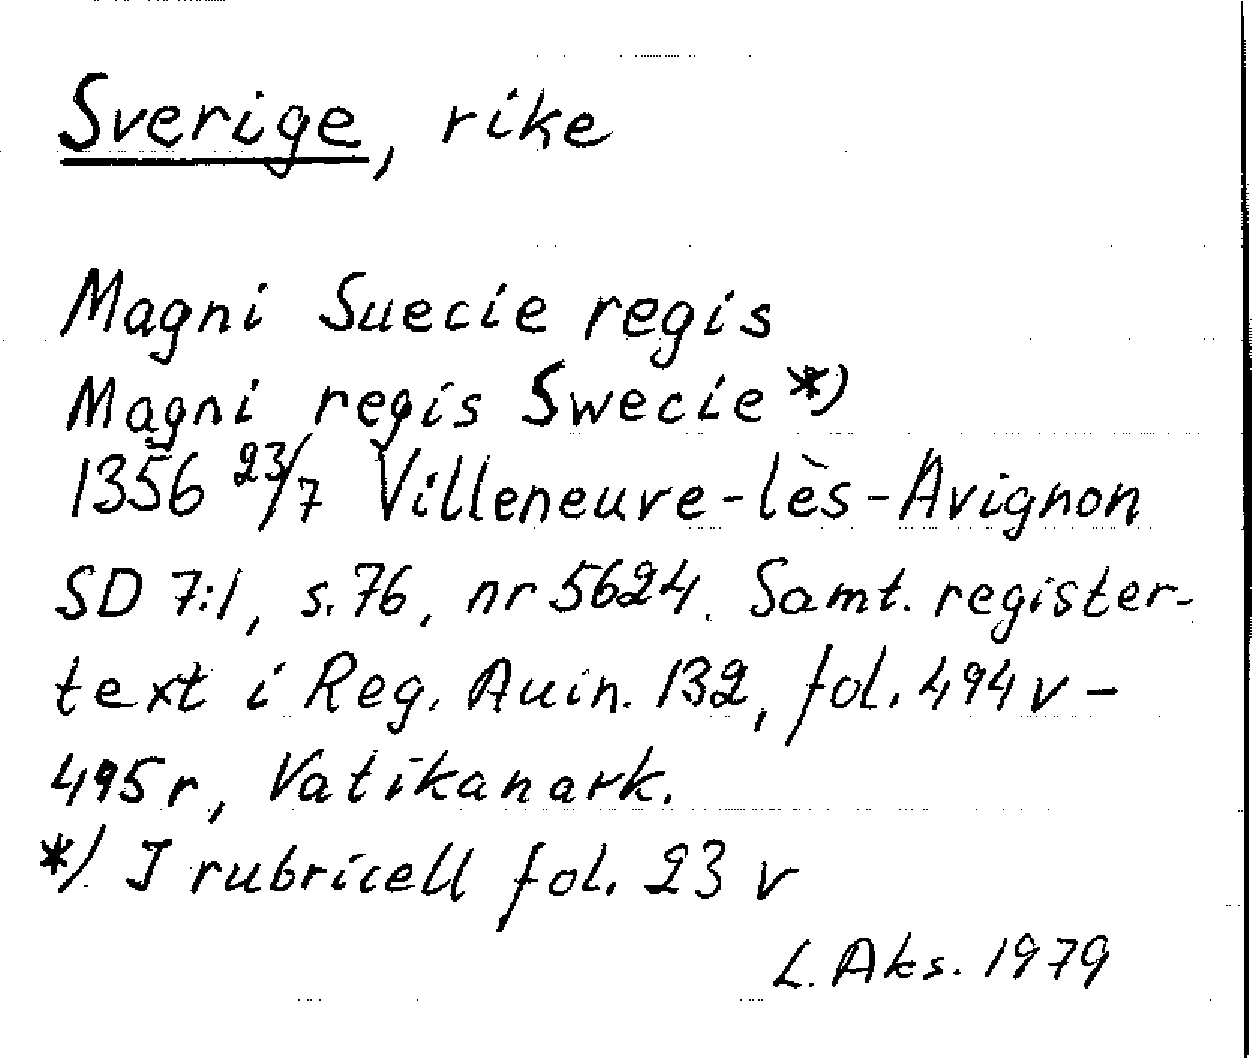 Sverige, rike
Magni Suecie regis
Magni regis Swecie *)
1356 23/7 Villeneuve-lès-Avignon
SD 7:1, s. 76, nr 5624. Samt. register-
text i Reg. Auin. 132, fol. 494 v -
495 r, Vatikanark.
*) I rubricell fol. 23 v
L. Aks. 1979